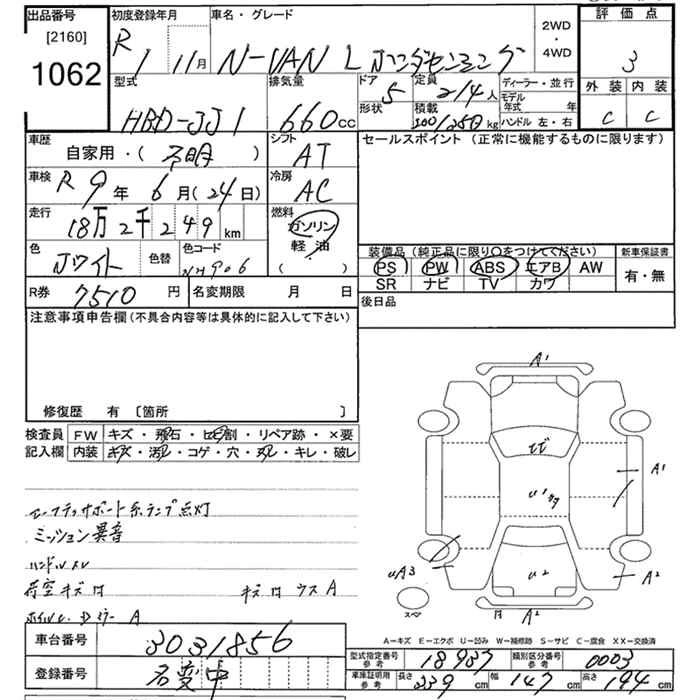 出品番号 初度登録年月 車名・グレード 2WD・4WD 評価点
[2160] R 1 11月 N-VAN L ホンダセンシング 3
1062 型式 排気量 ドア 5 定員 2/4人 ディーラー・並行 外装 内装
HBD-JJ1 660cc 形状 積載 200/350kg モデル年式 年 ハンドル 左・右 C C
車歴 自家用・(不明) シフト AT セールスポイント(正常に機能するものに限ります)
車検 R 9年 6月(24日) 冷房 AC
走行 18万2千249km 燃料 ガソリン
軽・油
( )
色 Jワイト 色替 色コード NH906 装備品(純正品に限り○をつけてください) 新車保証書
PS PW ABS エアB AW 有・無
SR ナビ TV カワ
R券 7510円 名変期限 月 日 後日品
注意事項申告欄(不具合内容等は具体的に記入して下さい)
修復歴 有 〔箇所 〕
検査員 FW キズ・飛石・ヒビ割・リペア跡・×要
記入欄 内装 キズ・汚レ・コゲ・穴・スレ・キレ・破レ
セーフティサポート系ランプ点灯
ミッション異音
ハンドルスレ
荷室キズ ロ キズロウスA
A1
ヒビ
A1
U2
UA3
A2
スペア
A2
A-キズ E-エクボ U-凹み W-補修跡 S-サビ C-腐食 XX-交換済
車台番号 3031856
登録番号 名変中
型式指定番号 参考 18937 類別区分番号 参考 0003
車庫証明用 参考 長さ 339cm 幅 147cm 高さ 194cm